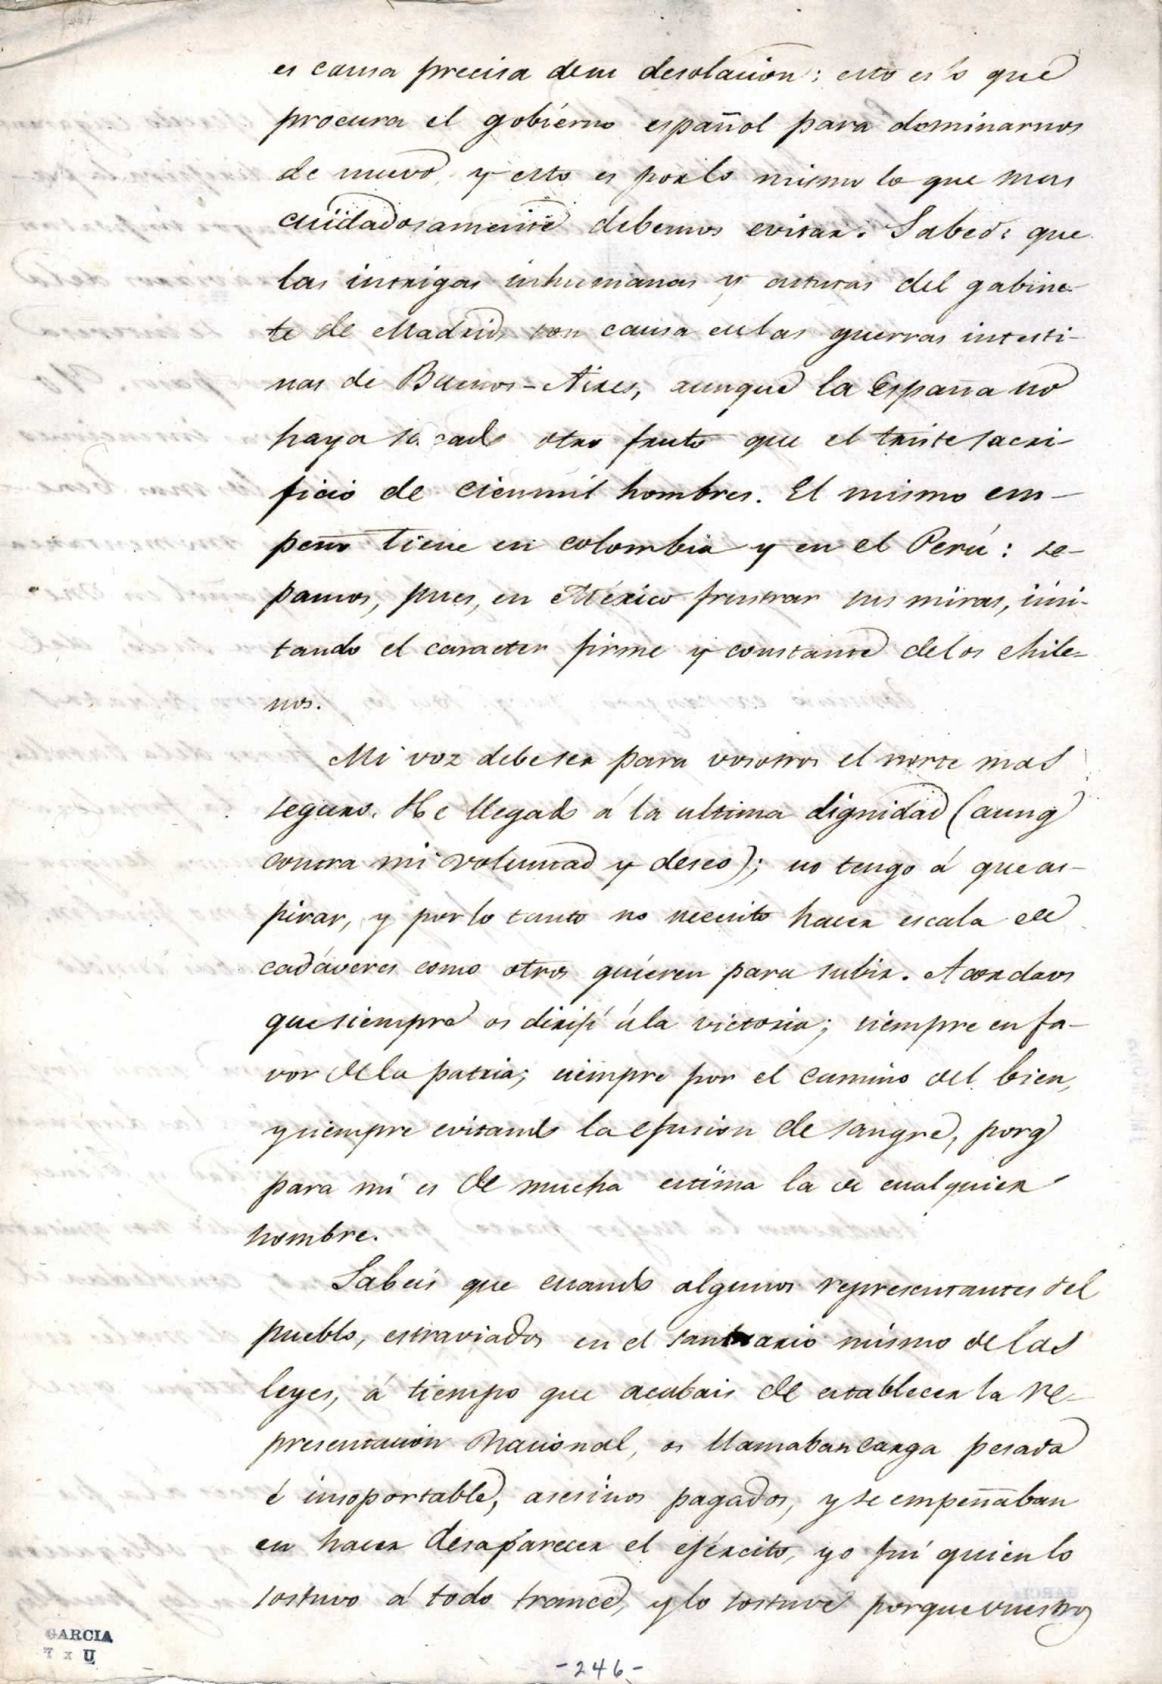 es causa precisa de su desolacion: esto es lo que
procura el gobierno español para dominarnos
de nuevo, y esto es por lo mismo lo que mas
cuidadosamente debemos evitar. Sabed: que
las intrigas inhumanas y astutas del gabine-
te de Madrid son causa en las guerras intesti-
nas de Buenos-Aires, aunque la España no
haya sacado otro fruto que el triste sacri-
ficio de cien mil hombres. El mismo em-
peño tiene en colombia y en el Perú: se-
pamos, pues, en México frustrar sus miras, imi-
tando el caracter firme y constante de los chile-
nos.
Mi voz debe ser para vosotros el norte mas
seguro. He llegado á la ultima dignidad (aunq
contra mi voluntad y deseo); no tengo á que as-
pirar, y por lo tanto no necesito hacer escala de
cadáveres como otros quieren para subir. Acordaos
que siempre os dirijí á la victoria; siempre en fa-
vor de la patria; siempre por el camino del bien,
y siempre evitando la efusion de sangre, porq
para mí es de mucha estima la de cualquier
hombre.
Sabeis que cuando algunos representantes del
pueblo, estraviados en el santuario mismo de las
leyes, á tiempo que acabais de establecer la re-
presentacion Nacional, os llamaban carga pesada
é insoportable, asesinos pagados, y se empeñaban
en hacer desaparecer el ejército, yo fuí quien lo
sostuvo á todo trance, y lo sostuve porque vuestros
GARCIA
-246-